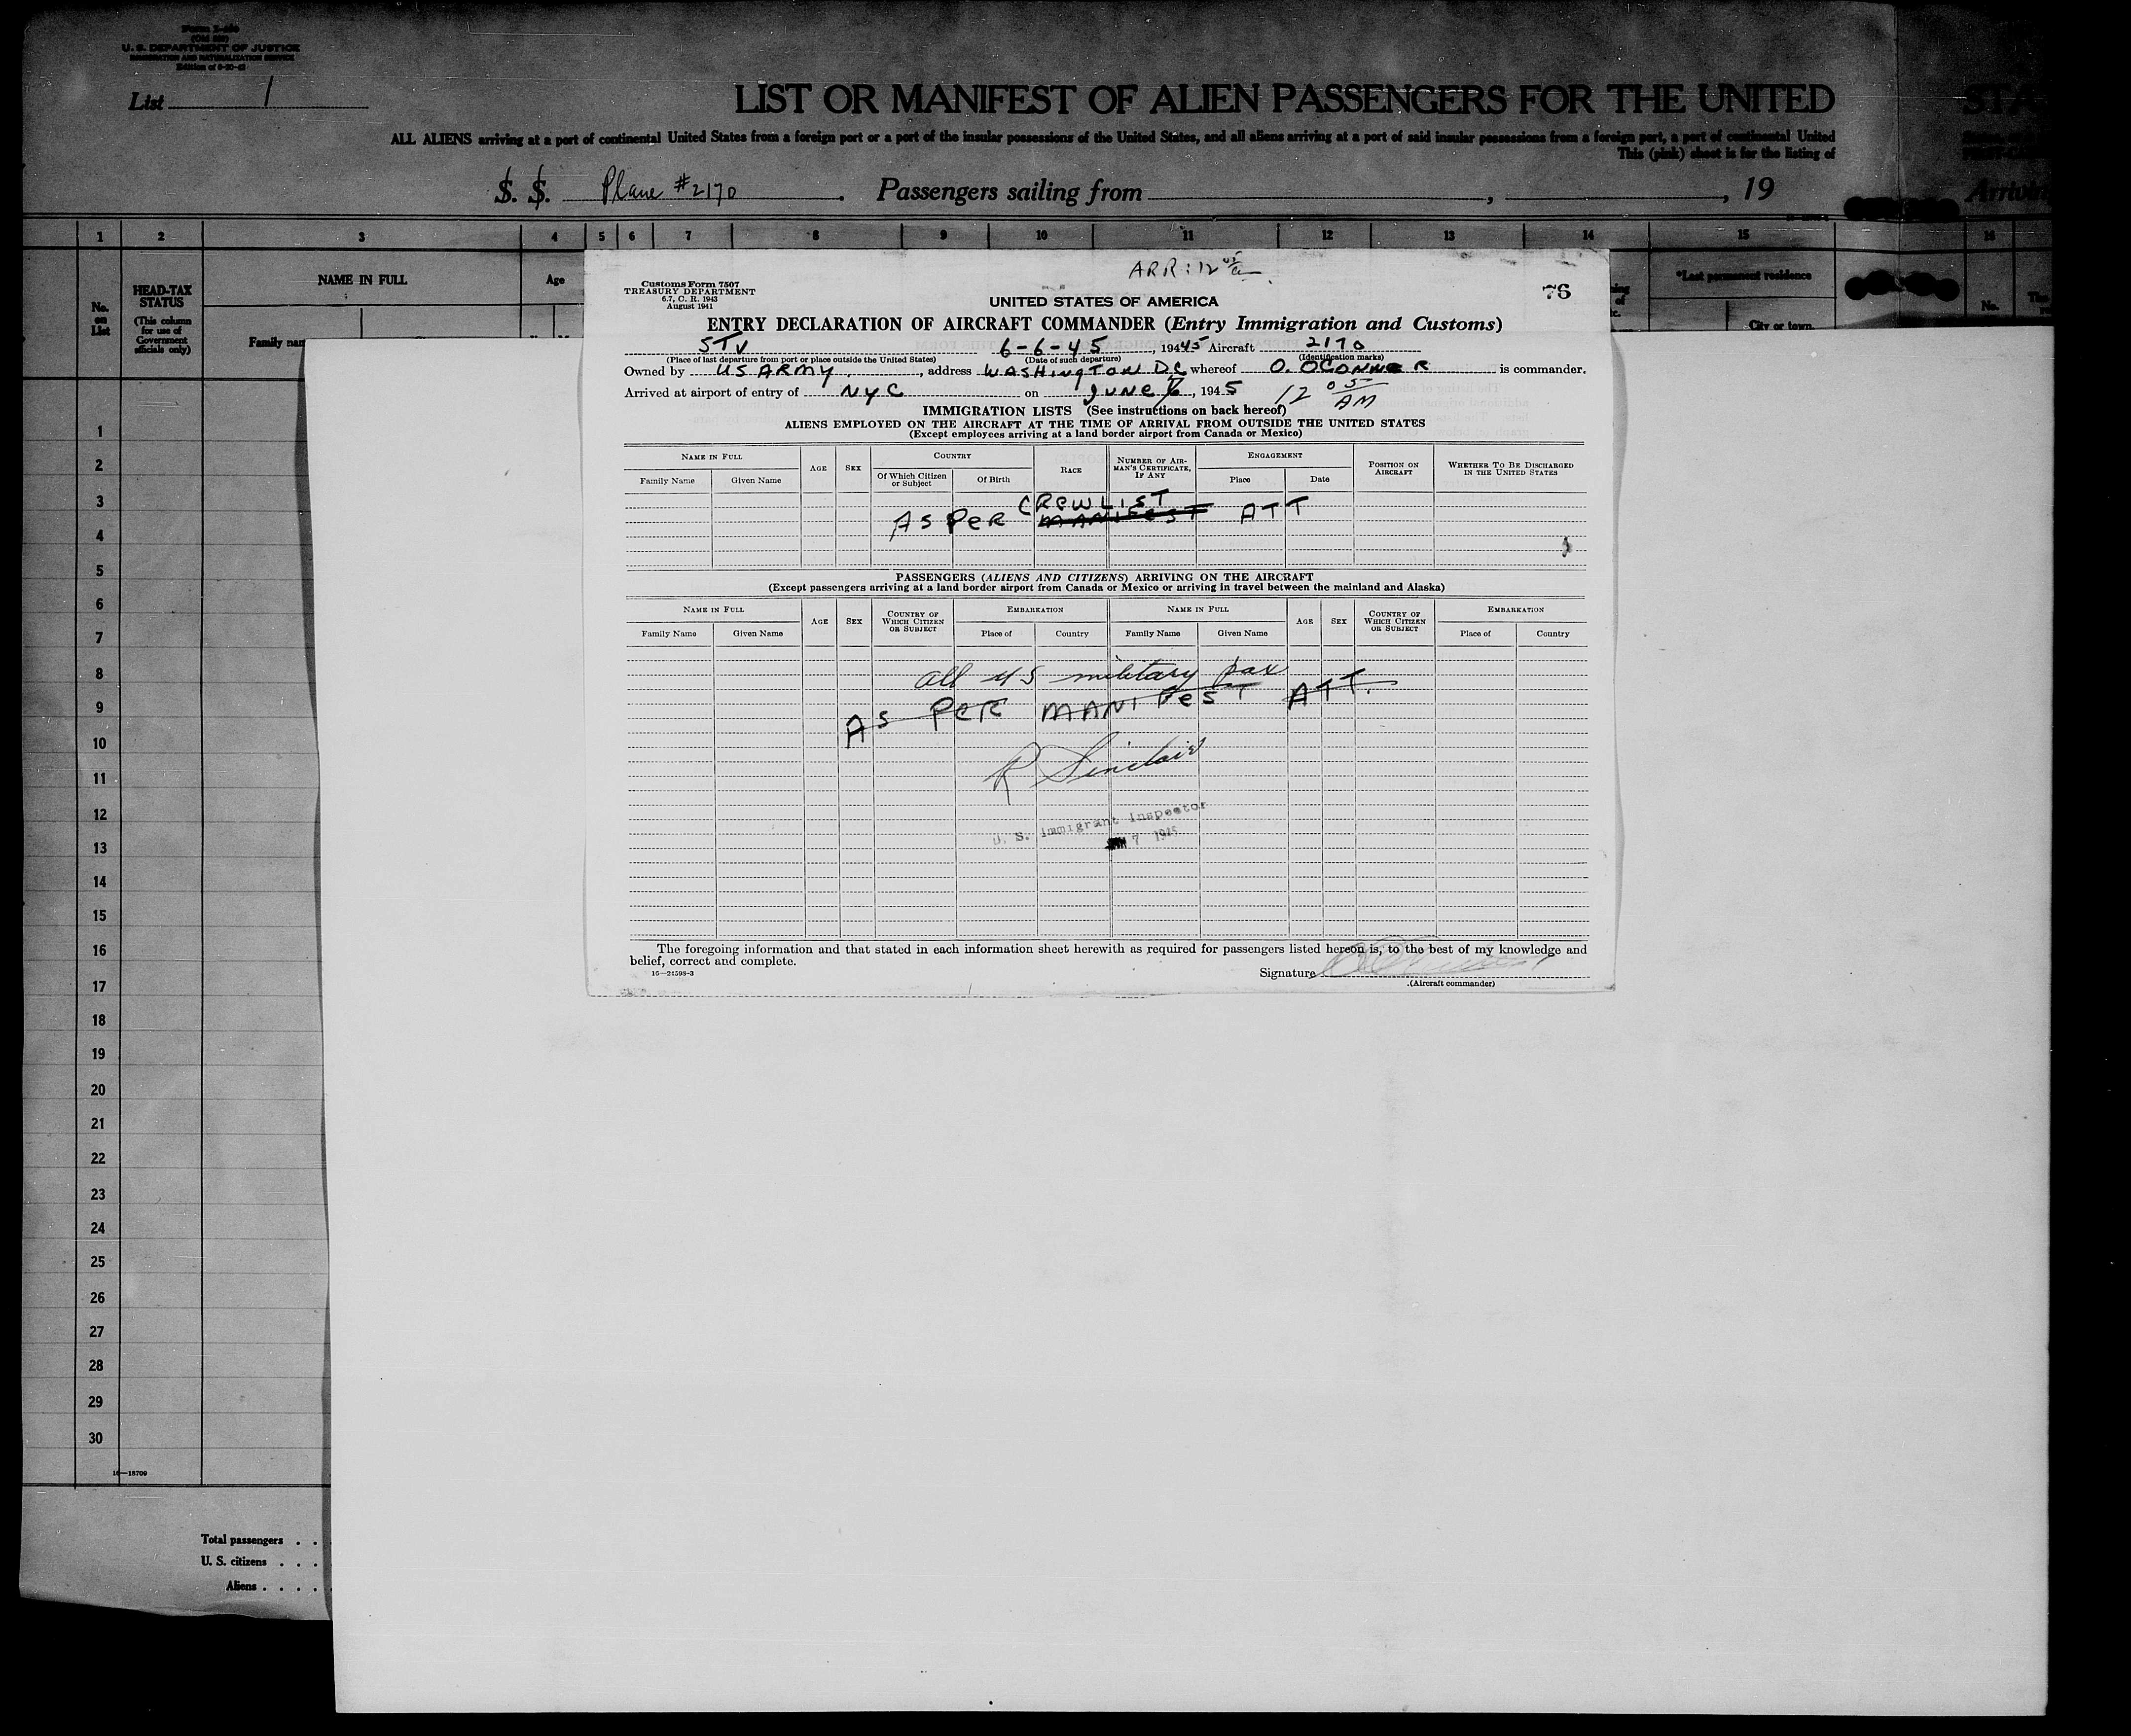 U. S. DEPARTMENT OF JUSTICE
IMMIGRATION AND NATURALIZATION SERVICE
List 1
LIST OR MANIFEST OF ALIEN PASSENGERS FOR THE UNITED STA
ALL ALIENS arriving at a port of continental United States from a foreign port or a port of the insular possessions of the United States, and all aliens arriving at a port of said insular possessions from a foreign port, a port of continental United
This (pink) sheet is for the listing of
S. S. Plane #2170 . Passengers sailing from , , 19 Arrivin
1 2 3 4 5 6 7 8 9 10 11 12 13 14 15 16
HEAD-TAX STATUS
(This column for use of Government officials only)
NAME IN FULL
Age
No. on List
Family nam
*Last permanent residence
City or town,
No.
ARR: 12 05 a
76
Customs Form 7507
TREASURY DEPARTMENT
6.7, C. R. 1943
August 1941
UNITED STATES OF AMERICA
ENTRY DECLARATION OF AIRCRAFT COMMANDER (Entry Immigration and Customs)
STV 6-6-45, 19445 Aircraft 2170
(Place of last departure from port or place outside the United States) (Date of such departure) (Identification marks)
Owned by US ARMY, address WASHINGTON DC whereof O. OCONNER is commander.
Arrived at airport of entry of NYC on JUNE 6, 1945 12 05 AM
IMMIGRATION LISTS (See instructions on back hereof)
ALIENS EMPLOYED ON THE AIRCRAFT AT THE TIME OF ARRIVAL FROM OUTSIDE THE UNITED STATES
(Except employees arriving at a land border airport from Canada or Mexico)
NAME IN FULL AGE SEX COUNTRY RACE NUMBER OF AIRMAN'S CERTIFICATE, IF ANY ENGAGEMENT POSITION ON AIRCRAFT WHETHER TO BE DISCHARGED IN THE UNITED STATES
Family Name Given Name Of Which Citizen or Subject Of Birth Place Date
CREWLIST
AS PER MANIFEST ATT
PASSENGERS (ALIENS AND CITIZENS) ARRIVING ON THE AIRCRAFT
(Except passengers arriving at a land border airport from Canada or Mexico or arriving in travel between the mainland and Alaska)
NAME IN FULL AGE SEX COUNTRY OF WHICH CITIZEN OR SUBJECT EMBARKATION NAME IN FULL AGE SEX COUNTRY OF WHICH CITIZEN OR SUBJECT EMBARKATION
Family Name Given Name Place of Country Family Name Given Name Place of Country
all US military pax
AS PER MANIFEST ATT.
R Sinclair
U. S. Immigrant Inspector
7 1945
The foregoing information and that stated in each information sheet herewith as required for passengers listed hereon is, to the best of my knowledge and
belief, correct and complete.
16—21598-3
Signature
(Aircraft commander)
1
2
3
4
5
6
7
8
9
10
11
12
13
14
15
16
17
18
19
20
21
22
23
24
25
26
27
28
29
30
16—18709
Total passengers . .
U. S. citizens . . .
Aliens . . . .